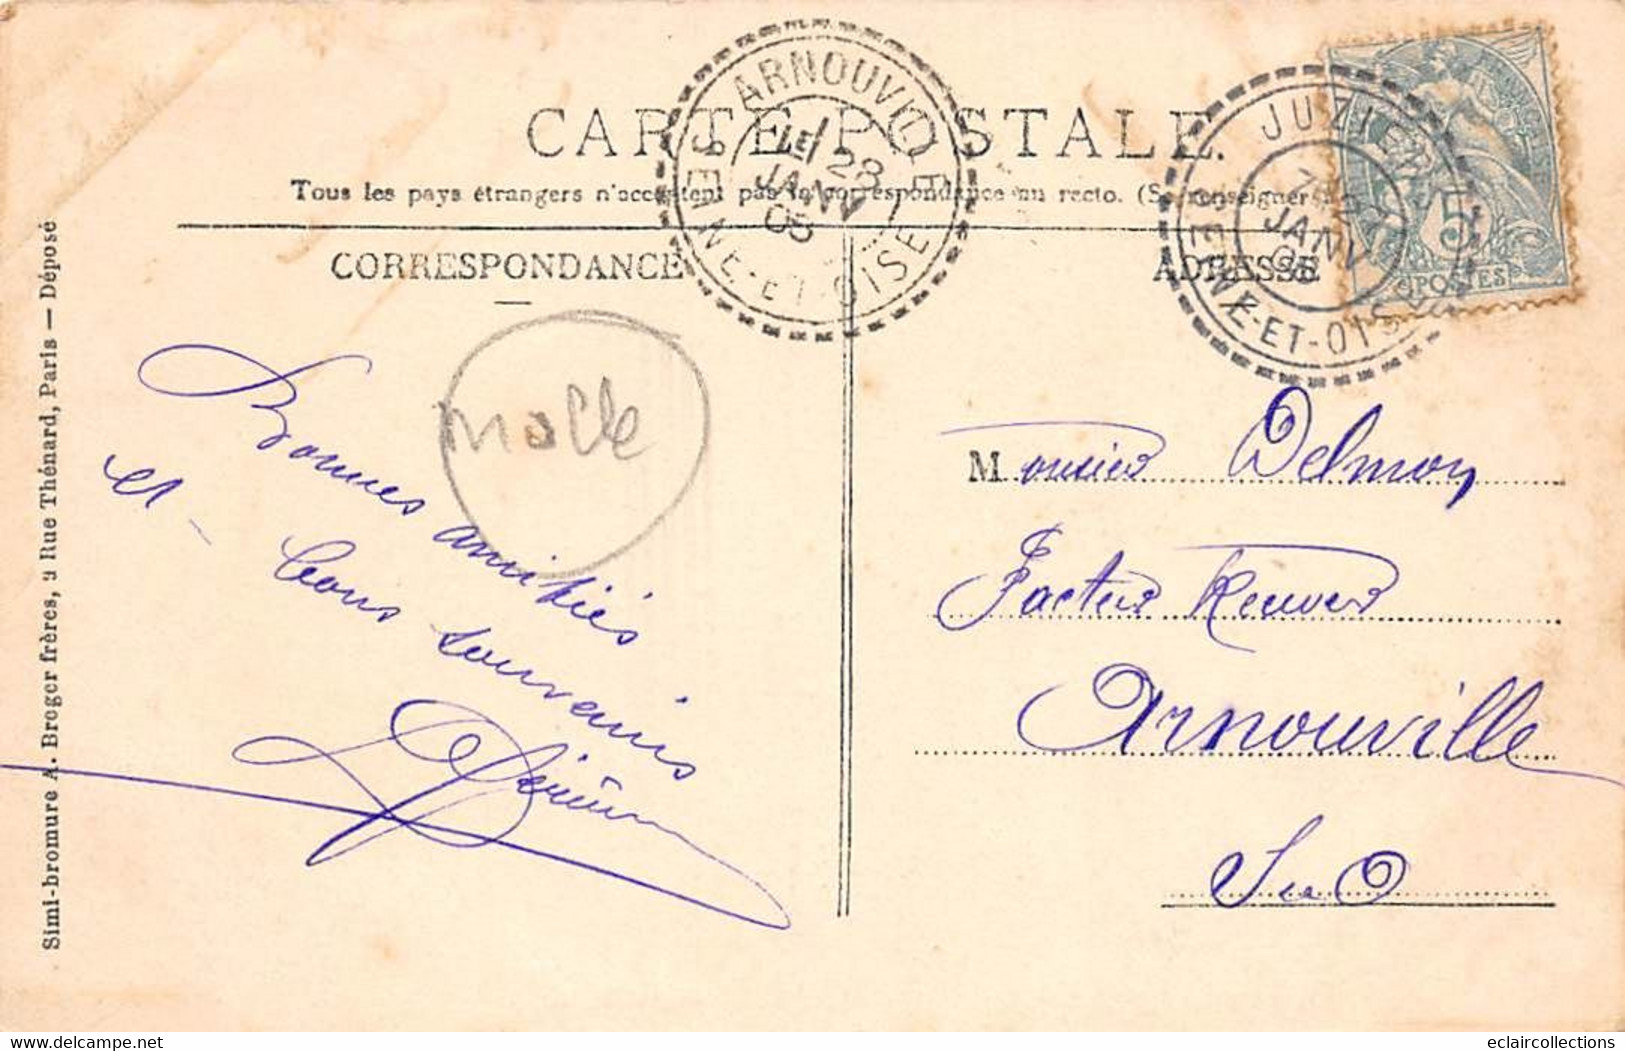 CARTE POSTALE.
Tous les pays étrangers n'acceptent pas la correspondance au recto. (Se renseigner
CORRESPONDANCE
ADRESSE
ARNOUVILLE
LE 28
JANV
05
SEINE-ET-OISE
JUZIERS
JANV
SEINE-ET-OISE
5
POSTES
molle
Bonnes amitiés
et bons souvenirs
Monsieur Delmon
Facteur
Arnouville
S et O
Simi-bromure A. Breger frères, 9 Rue Thénard, Paris — Déposé
delcampe.net
eclaircollections